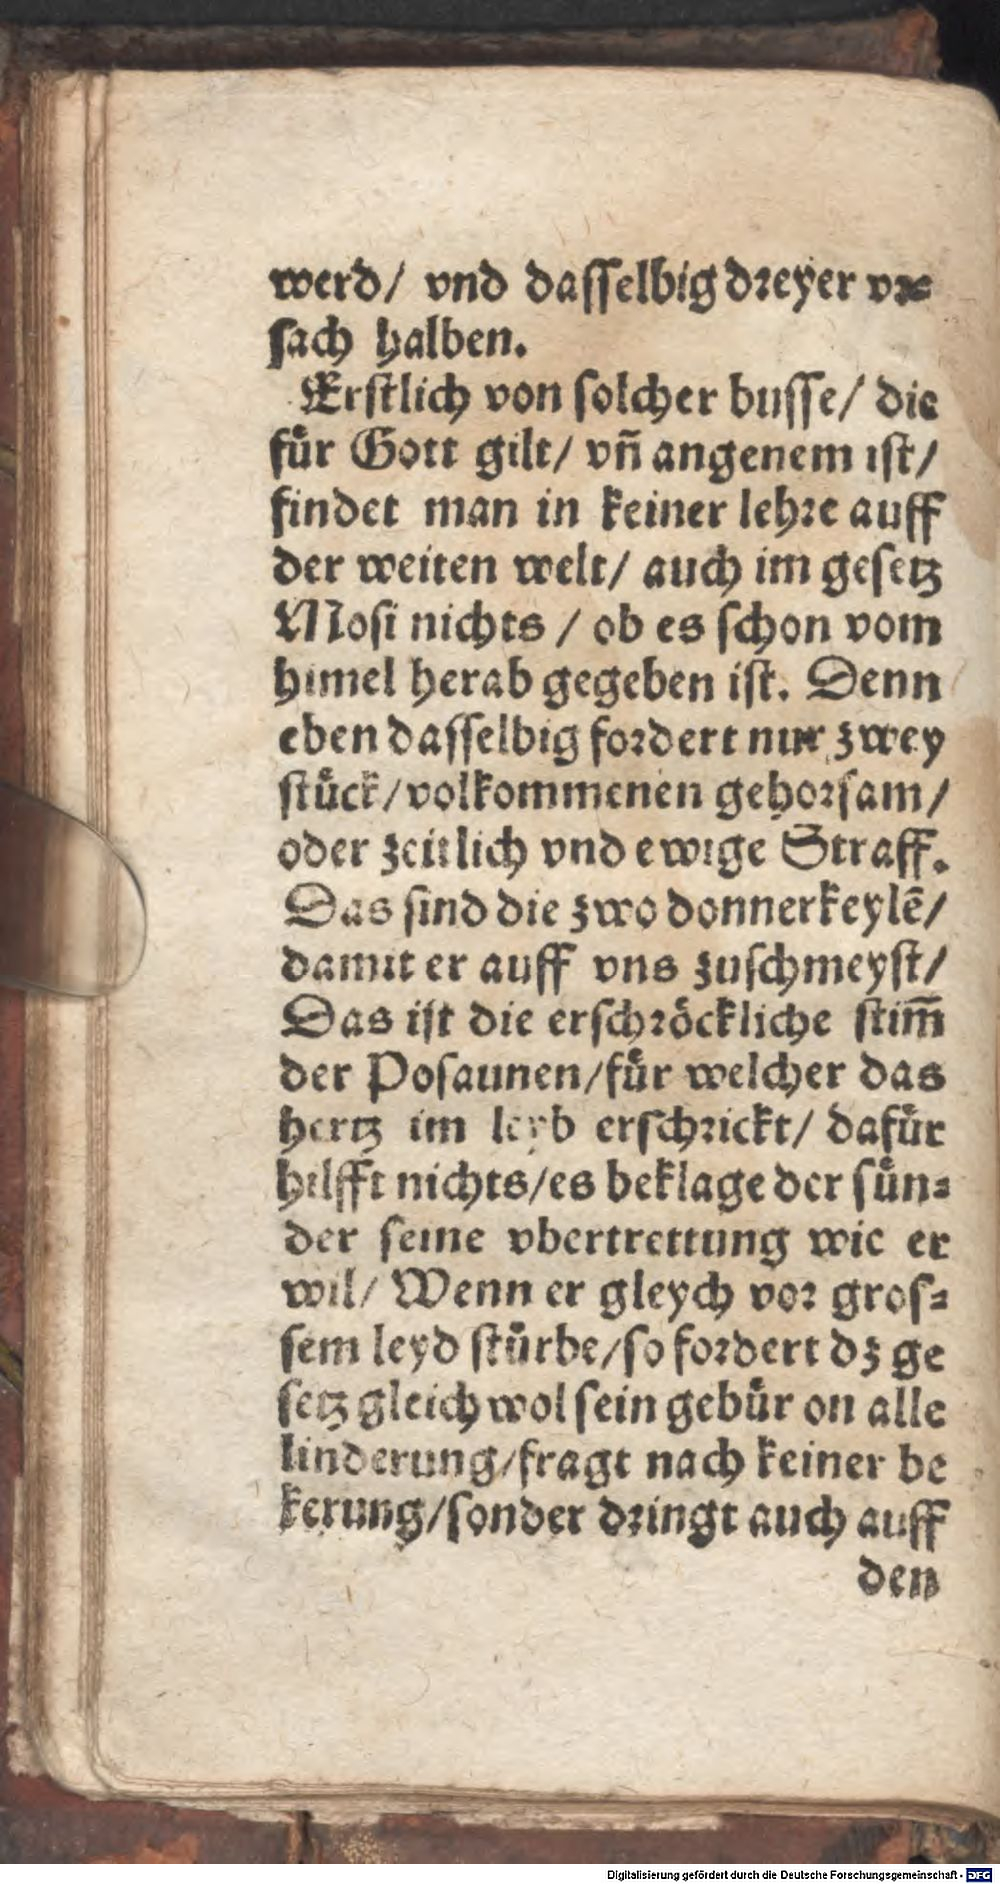 werd/ vnd dasselbig dreyer vr=
sach halben.
Erstlich von solcher busse/ die
fuͤr Gott gilt/ vñ angenem ist/
findet man in keiner lehre auff
der weiten welt/ auch im gesetz
Mosi nichts / ob es schon vom
himel herab gegeben ist. Denn
eben dasselbig fordert nur zwey
stuͤck/volkommenen gehorsam/
oder zeitlich vnd ewige Straff.
Das sind die zwo donnerkeylẽ/
damit er auff vns zuschmeyst/
Das ist die erschroͤckliche stim̃
der Posaunen/fuͤr welcher das
hertz im leyb erschrickt/ dafuͤr
hilfft nichts/es beklage der suͤn=
der seine vbertrettung wie er
wil/ Wenn er gleych vor gros=
sem leyd stuͤrbe/so fordert dz ge
setz gleich wol sein gebuͤr on alle
linderung/fragt nach keiner be
kerung/sonder dringt auch auff
den
Digitalisierung gefördert durch die Deutsche Forschungsgemeinschaft - DFG